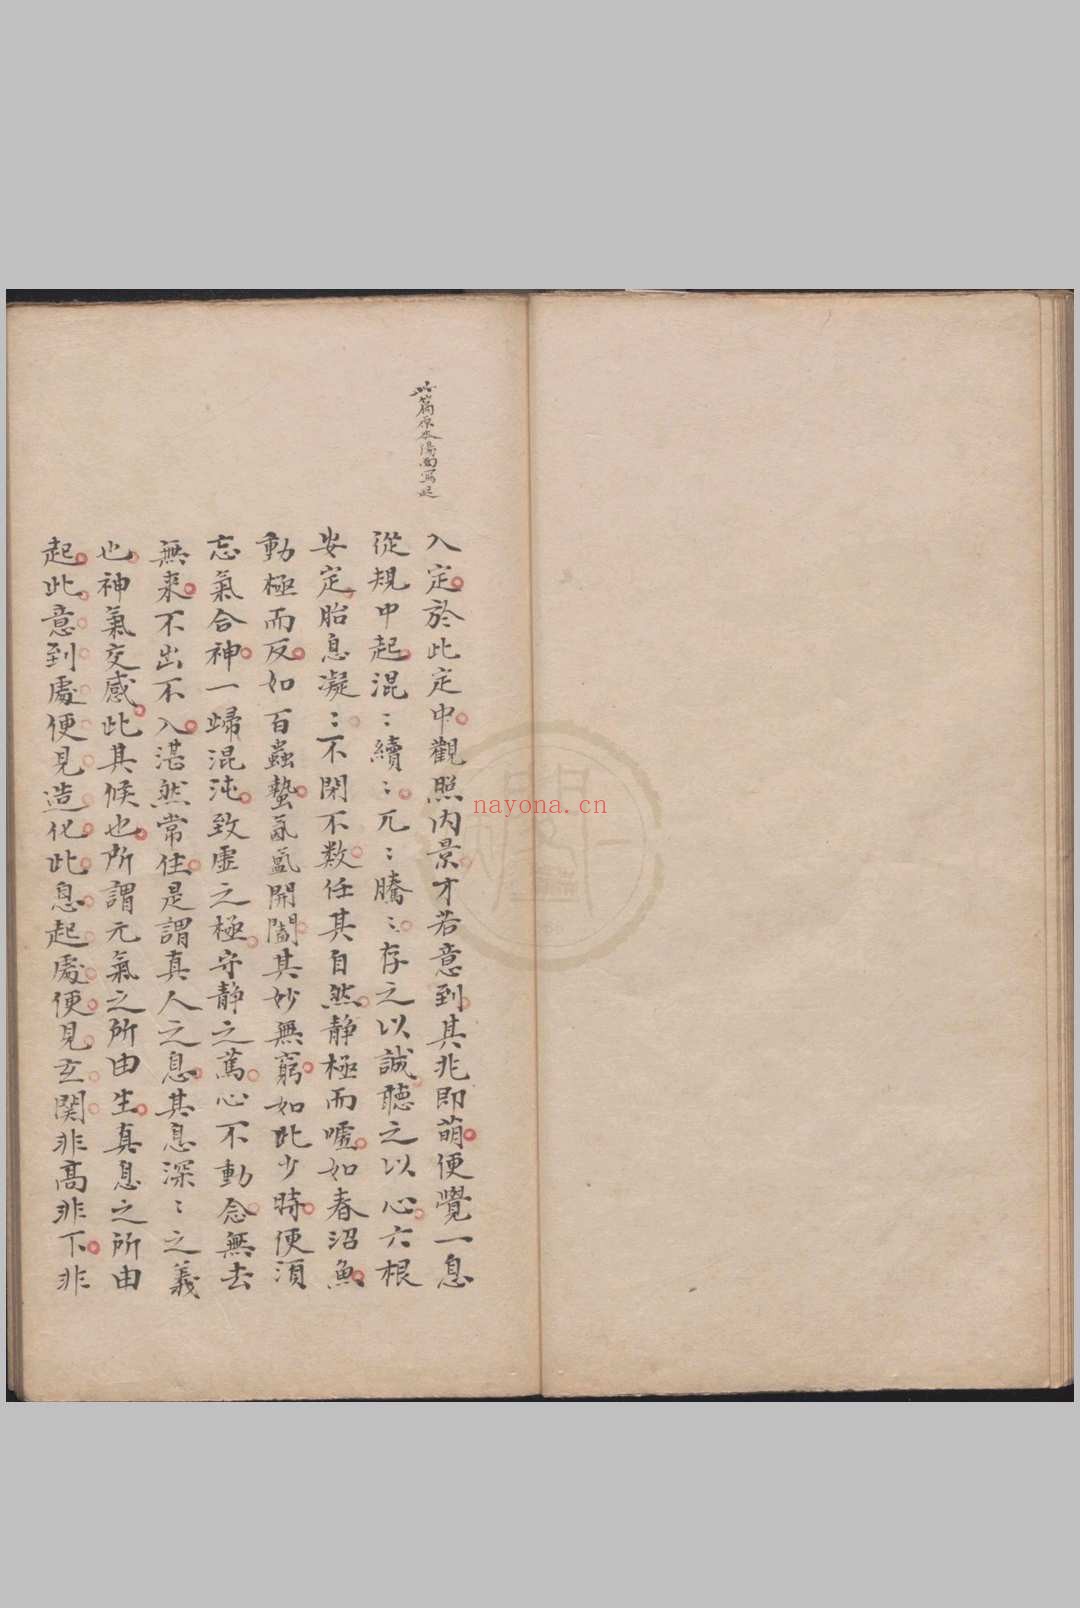 此篇原本陽面寫起
入定於此定中觀照內景才若意到其兆即萌便覺一息
從規中起混〻續〻兀〻騰〻存之以誠聽之以心六根
安定胎息凝〻不閉不數任其自然靜極而噓如春沼魚
動極而反如百蟲蟄氤氳開闔其妙無窮如此少時便須
忘氣合神一歸混沌致虛之極守靜之篤心不動念無去
無來不出不入湛然常住是謂真人之息其息深〻之義
也神氣交感此其候也所謂元氣之所由生真息之所由
起此意到處便見造化此息起處便見玄関非高非下非
nayona.cn